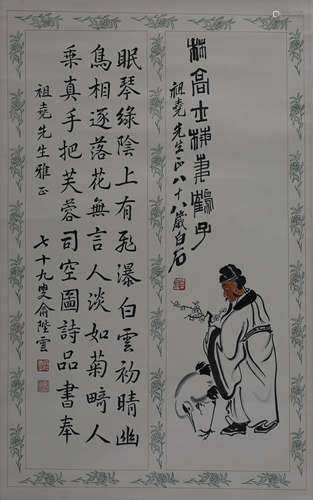 林高士梅妻鶴子
祖堯先生正八十八歲白石
眠琴綠陰上有飛瀑白雲初晴幽
鳥相逐落花無言人淡如菊畸人
乘真手把芙蓉司空圖詩品書奉
祖堯先生雅正
七十九叟俞陛雲